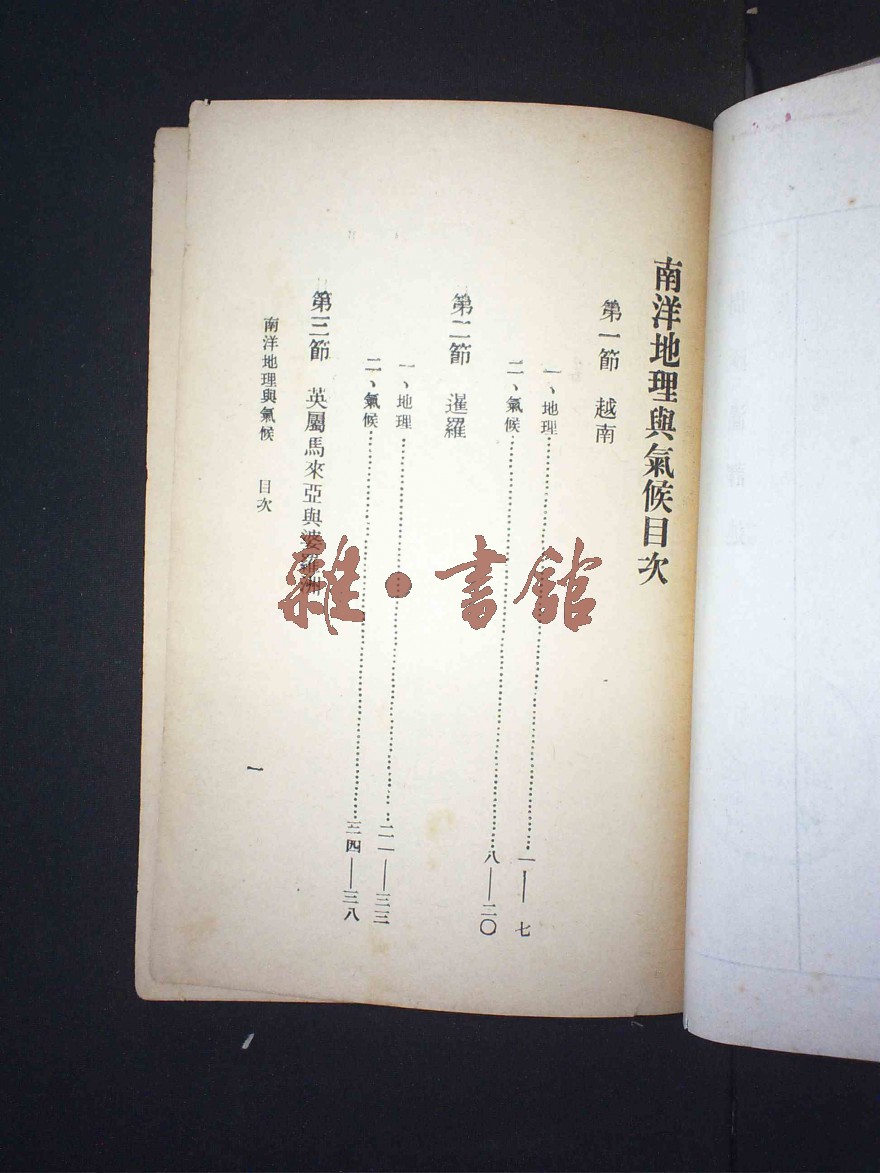 南洋地理與氣候目次
第一節 越南
一、地理……一——七
二、氣候……八——二〇
第二節 暹羅
一、地理……二一——三三
二、氣候……三四——三八
第三節 英屬馬來亞與婆羅洲
南洋地理與氣候 目次
一
雜·書館